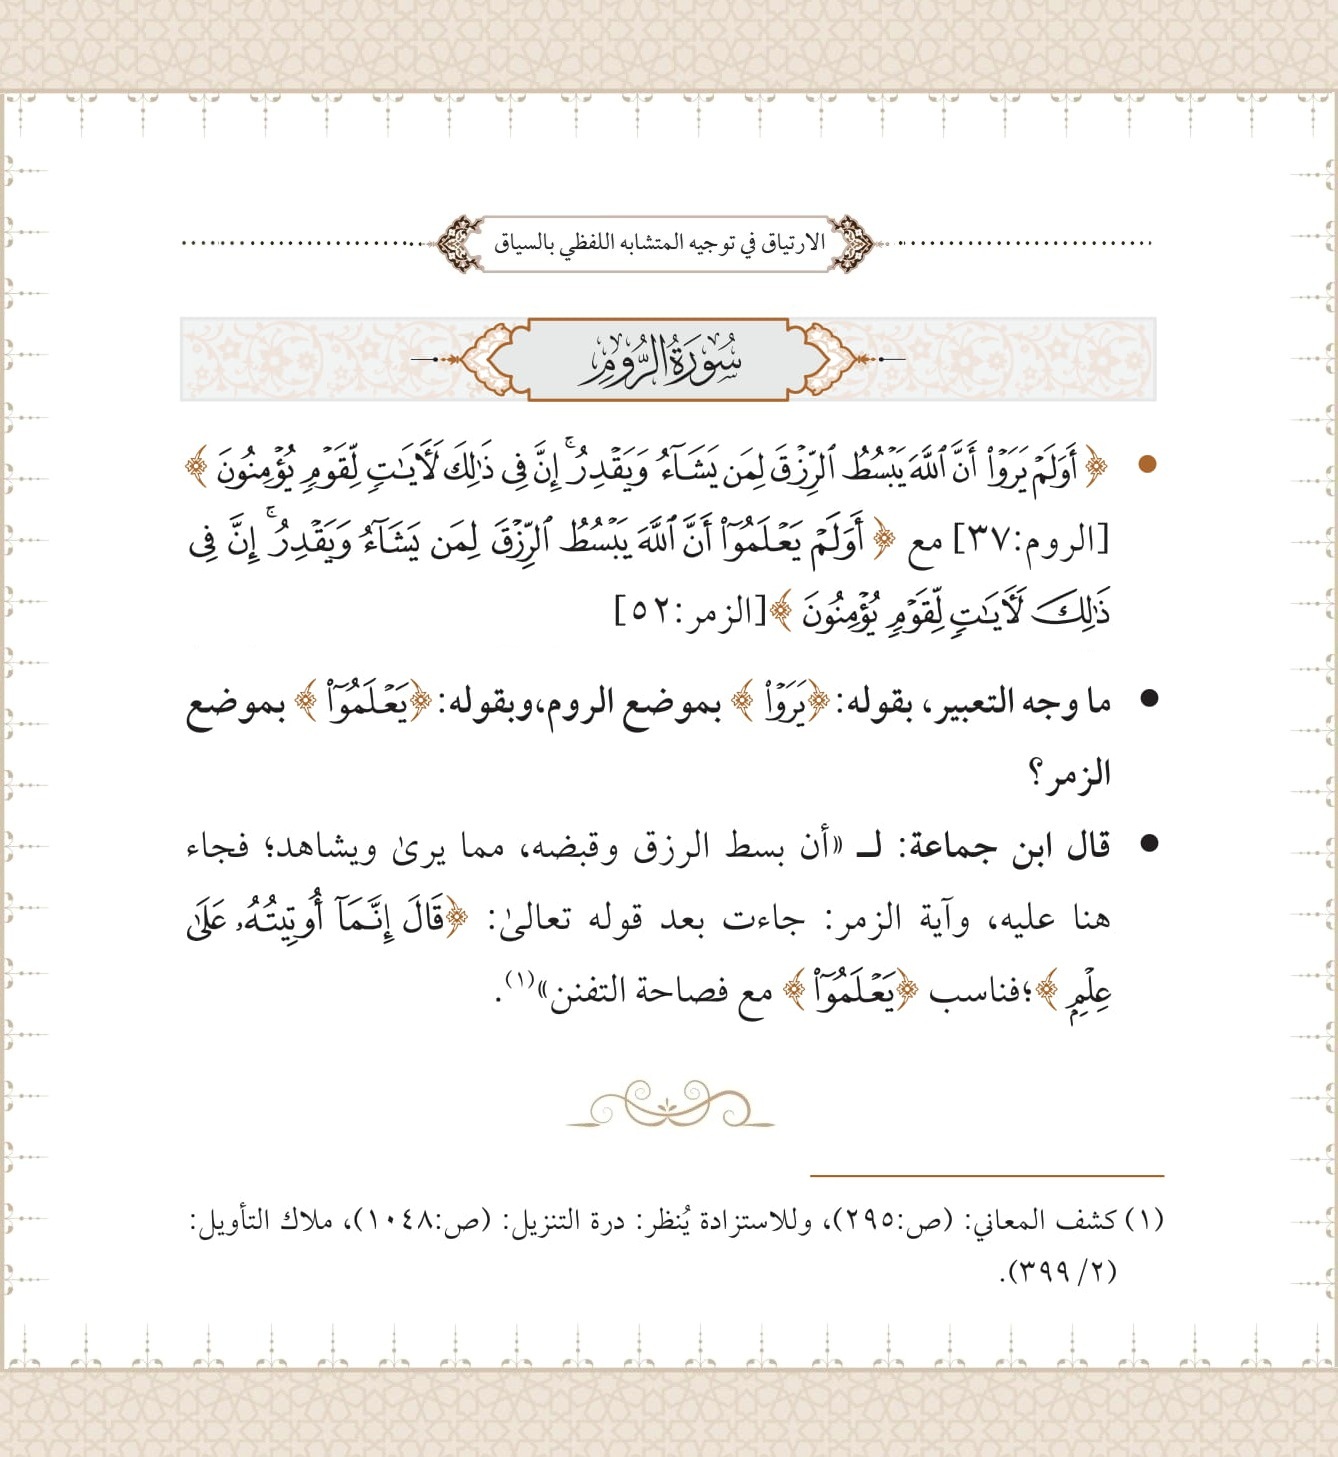 الارتياق في توجيه المتشابه اللفظي بالسياق
سُورَةُ الرُّومِ
﴿أَوَلَمۡ يَرَوۡاْ أَنَّ ٱللَّهَ يَبۡسُطُ ٱلرِّزۡقَ لِمَن يَشَآءُ وَيَقۡدِرُۚ إِنَّ فِي ذَٰلِكَ لَأٓيَٰتٖ لِّقَوۡمٖ يُؤۡمِنُونَ﴾
[الروم:٣٧] مع ﴿أَوَلَمۡ يَعۡلَمُوٓاْ أَنَّ ٱللَّهَ يَبۡسُطُ ٱلرِّزۡقَ لِمَن يَشَآءُ وَيَقۡدِرُۚ إِنَّ فِي
ذَٰلِكَ لَأٓيَٰتٖ لِّقَوۡمٖ يُؤۡمِنُونَ﴾[الزمر:٥٢]
● ما وجه التعبير، بقوله: ﴿يَرَوۡاْ﴾ بموضع الروم،وبقوله: ﴿يَعۡلَمُوٓاْ﴾ بموضع
الزمر؟
● قال ابن جماعة: لـ «أن بسط الرزق وقبضه، مما يرىٰ ويشاهد؛ فجاء
هنا عليه، وآية الزمر: جاءت بعد قوله تعالىٰ: ﴿قَالَ إِنَّمَآ أُوتِيتُهُۥ عَلَىٰ
عِلۡمِۭ﴾؛فناسب ﴿يَعۡلَمُوٓاْ﴾ مع فصاحة التفنن»(١).
(١) كشف المعاني: (ص:٢٩٥)، وللاستزادة يُنظر: درة التنزيل: (ص:١٠٤٨)، ملاك التأويل:
(٢/ ٣٩٩).